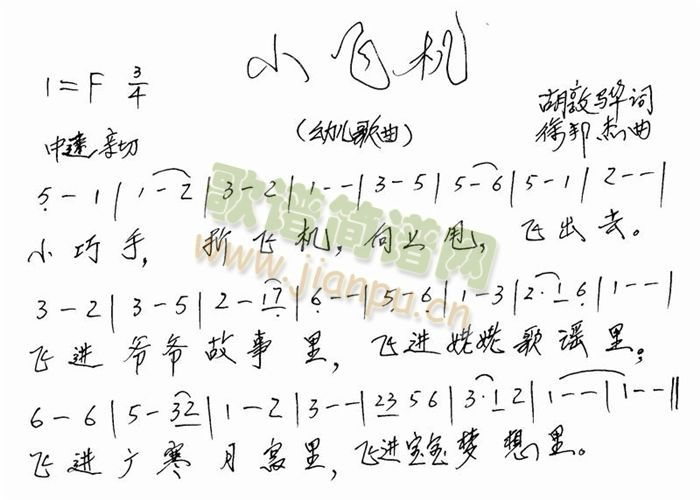 小飞机
1=F 3/4
(幼儿歌曲)
胡敦骅词
徐邦杰曲
中速 亲切
5 - 1 | 1 - 2 | 3 - 2 | 1 - - | 3 - 5 | 5 - 6 | 5 - 1 | 2 - - |
小巧手, 折飞机, 向上甩, 飞出去。
3 - 2 | 3 - 5 | 2 - 17 | 6 - - | 5 - 6 | 1 - 3 | 2·1 6 | 1 - - |
飞进爷爷故事里, 飞进姥姥歌谣里;
6 - 6 | 5 - 32 | 1 - 2 | 3 - - | 23 5 6 | 3·1 2 | 1 - - | 1 - - ||
飞进广寒月宫里, 飞进宝宝梦想里。
歌谱简谱网
www.jianpu.cn